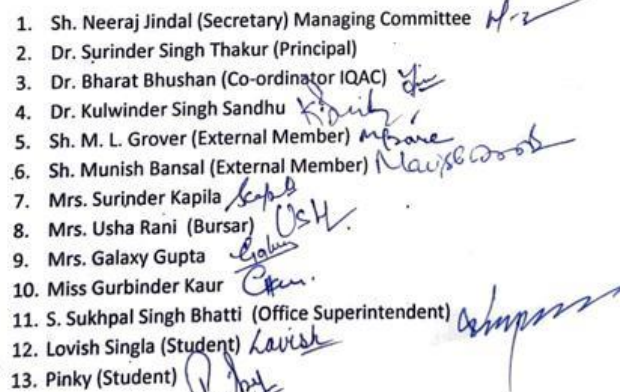 1. Sh. Neeraj Jindal (Secretary) Managing Committee
2. Dr. Surinder Singh Thakur (Principal)
3. Dr. Bharat Bhushan (Co-ordinator IQAC)
4. Dr. Kulwinder Singh Sandhu
5. Sh. M. L. Grover (External Member)
6. Sh. Munish Bansal (External Member)
7. Mrs. Surinder Kapila
8. Mrs. Usha Rani (Bursar) Usha
9. Mrs. Galaxy Gupta
10. Miss Gurbinder Kaur
11. S. Sukhpal Singh Bhatti (Office Superintendent)
12. Lovish Singla (Student) Lavish
13. Pinky (Student)